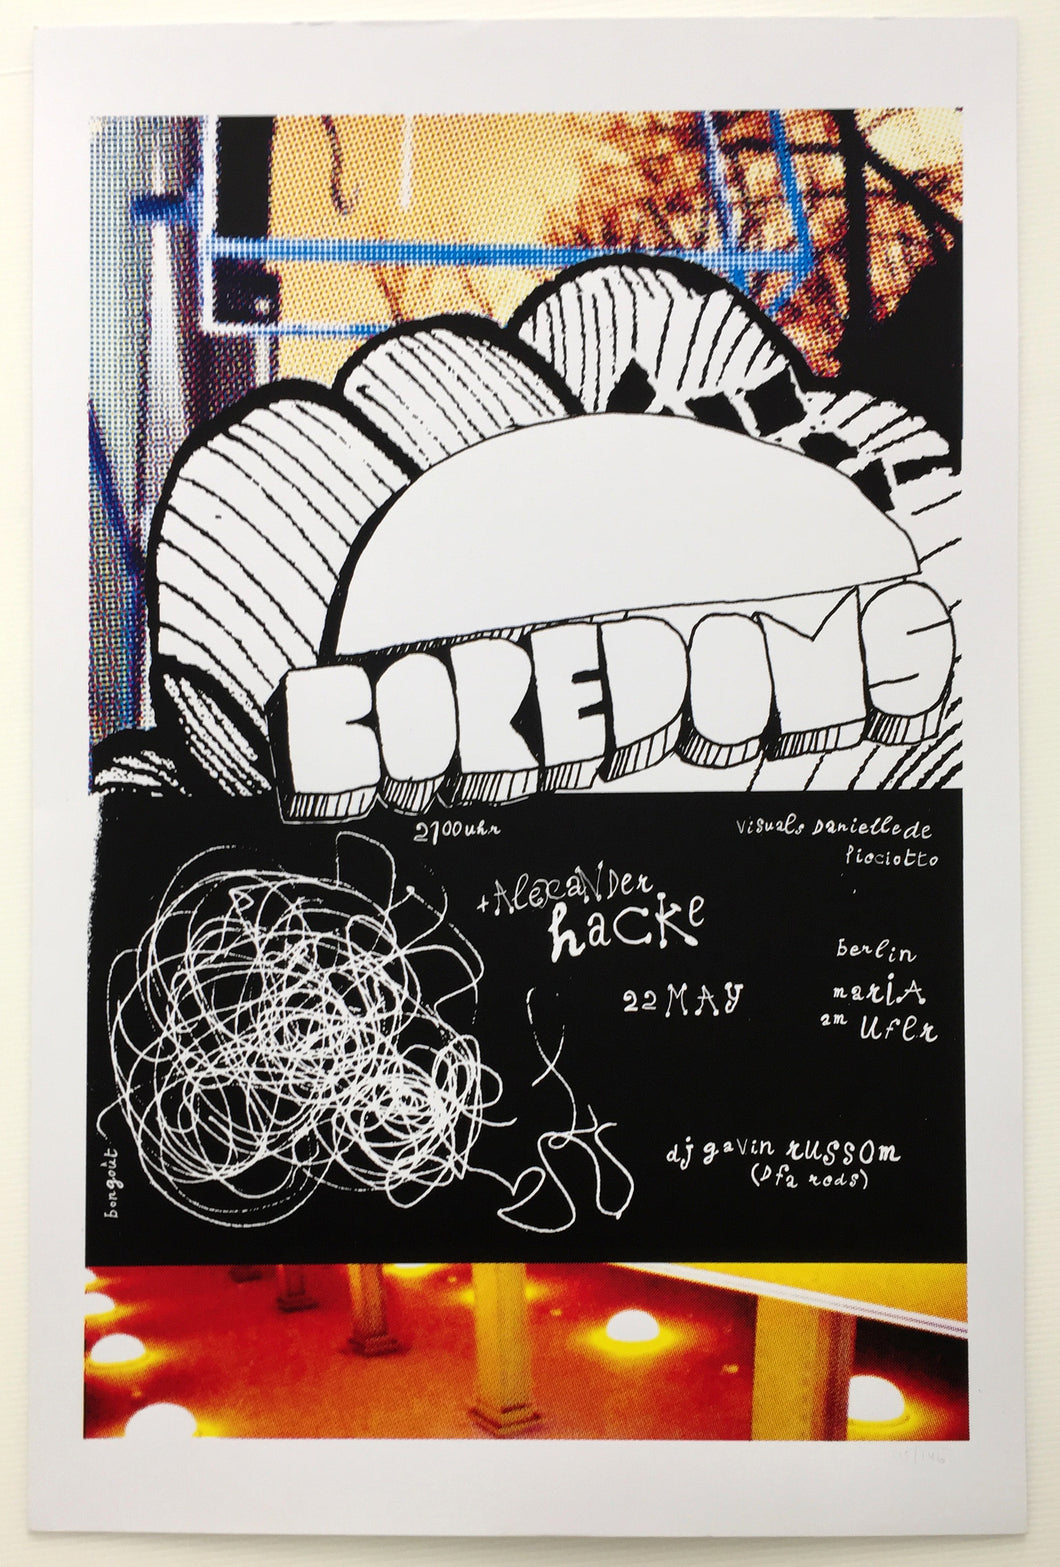 BOREDOMS
2100 uhr
visuals Danielle de
Piociotto
+ AlexaNDer
hacke
22 MAY
berlin
mariA
am Ufer
dj gavin russom
(Dfa rods)
bongoût